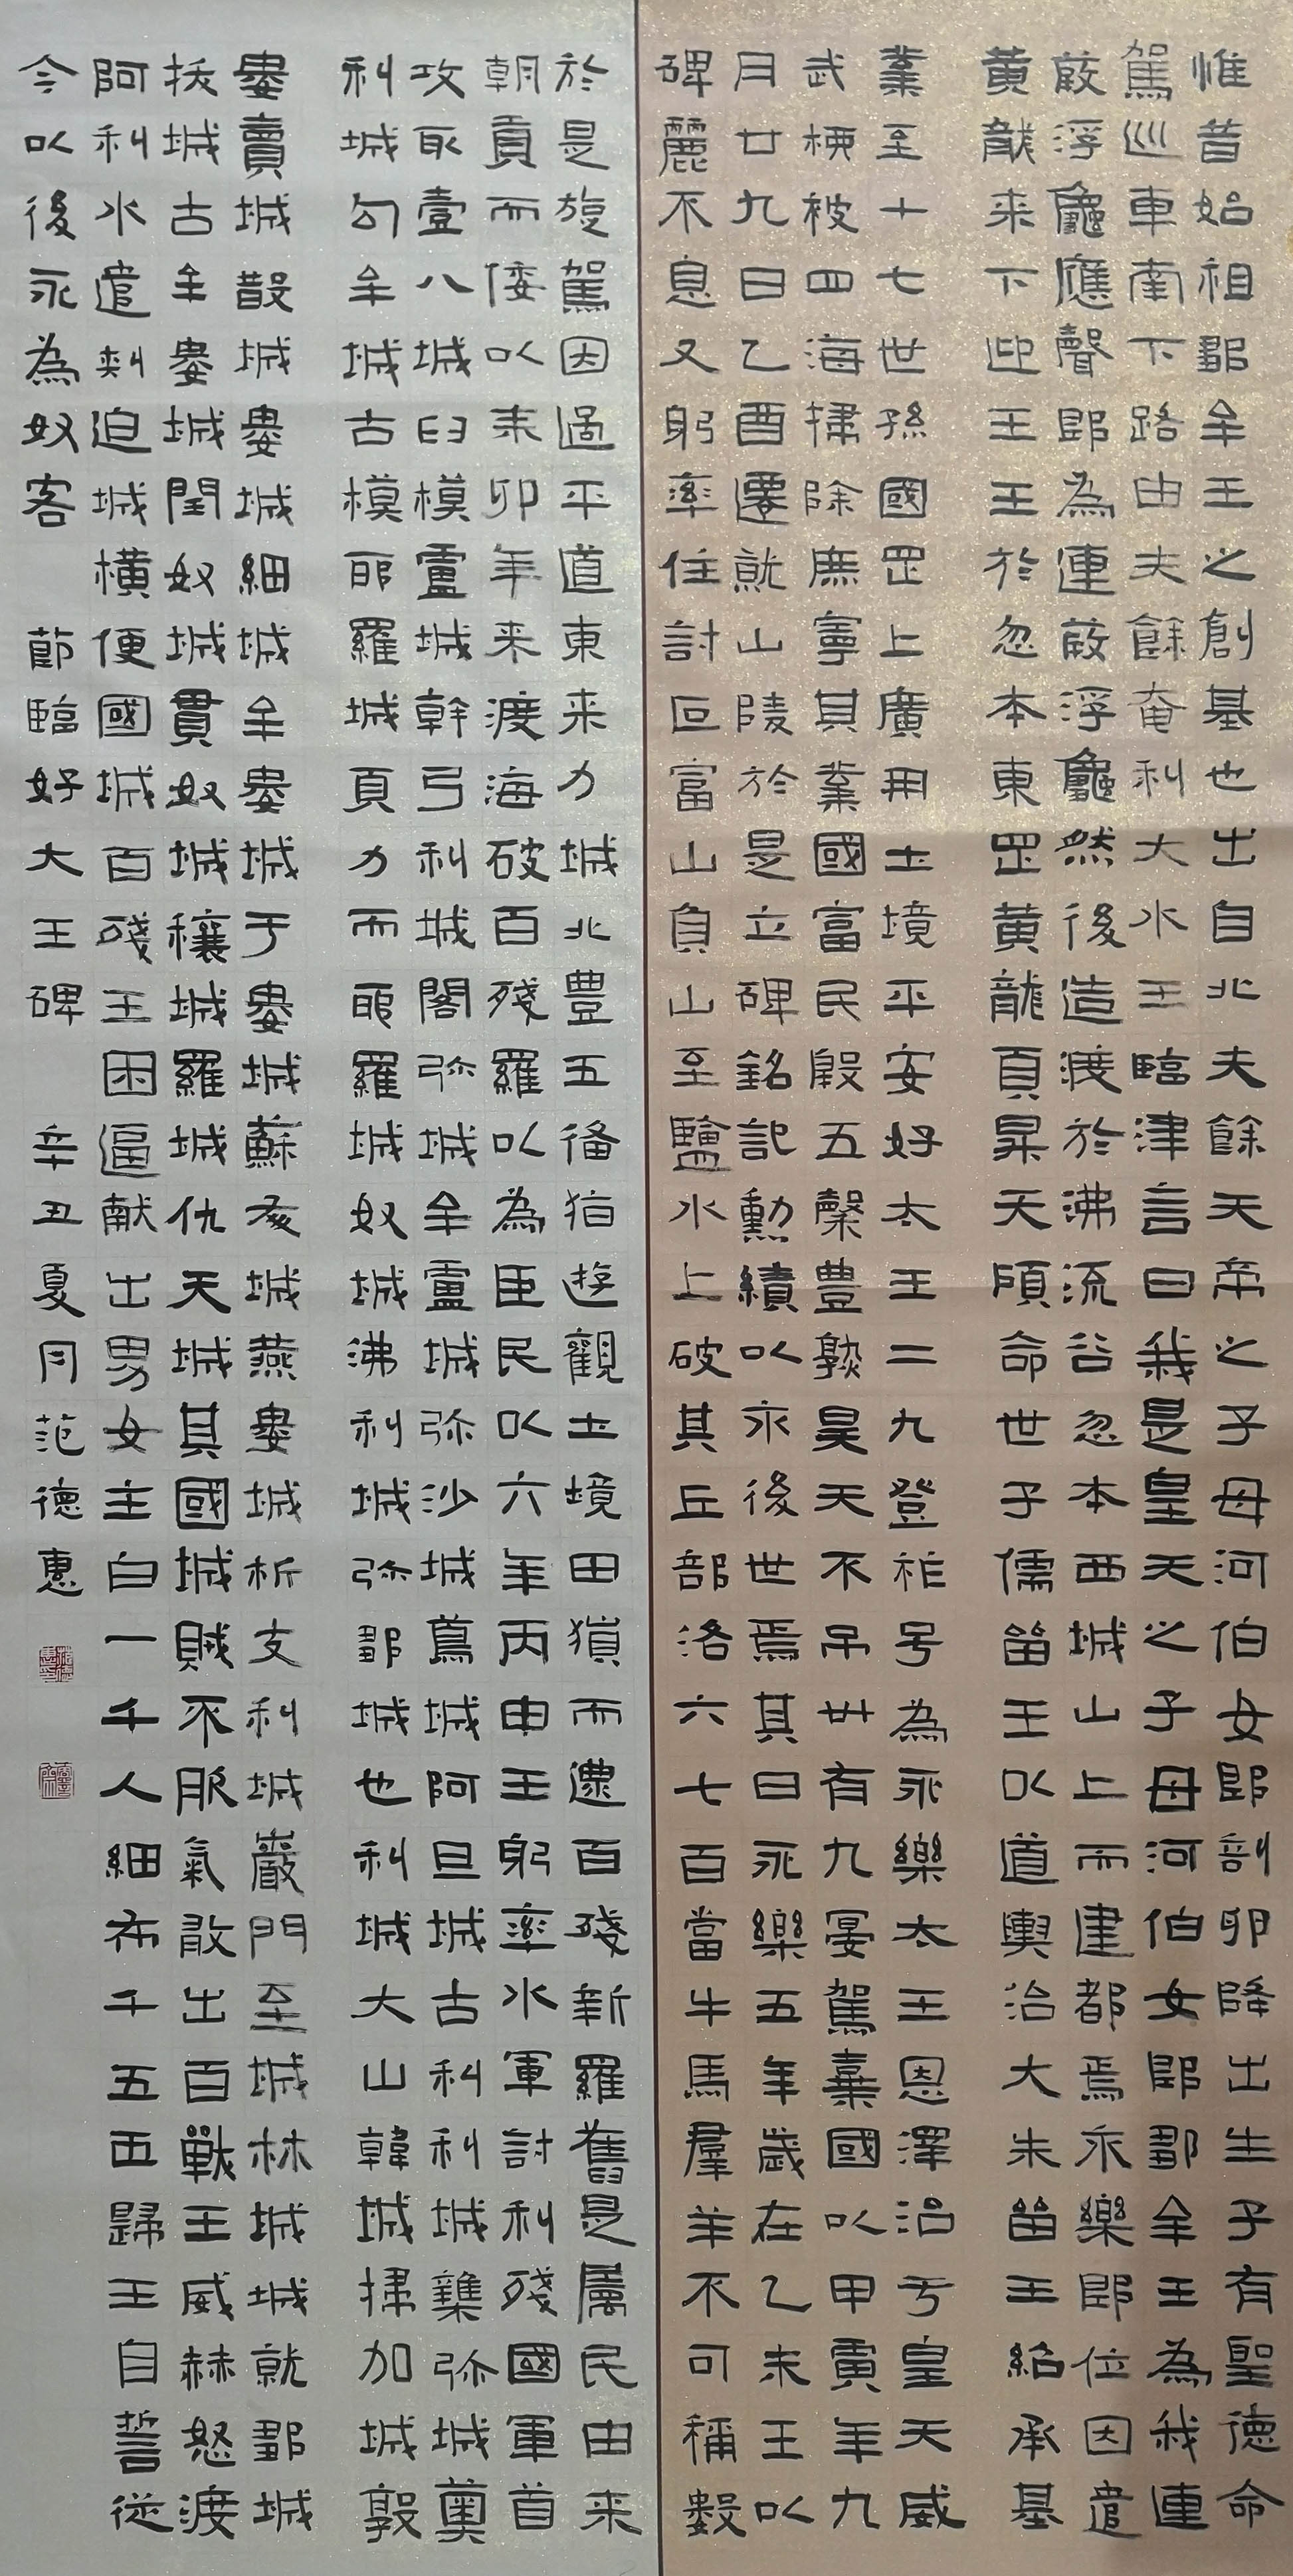 惟昔始祖鄒牟王之創基也出自北夫餘天帝之子母河伯女郎剖卵降出生子有聖德命
駕巡車南下路由夫餘奄利大水王臨津言曰我是皇天之子母河伯女郎鄒牟王為我連
葭浮龜應聲即為連葭浮龜然後造渡於沸流谷忽本西城山上而建都焉永樂即位因遣
黃龍来下迎王王於忽本東罡黃龍頁昇天頋命世子儒留王以道輿治大朱留王紹承基
業至十七世孫國罡上廣用土境平安好太王二九登祚号為永樂太王恩澤洽于皇天威
武被四海掃除庶寧其業國富民殷五穀豊熟昊天不吊卅有九宴駕棄國以甲寅年九
月廿九日乙酉遷就山陵於是立碑銘記勳績以永後世焉其曰永樂五年歲在乙未王以
碑麗不息又躬率住討叵富山負山至鹽水上破其丘部洛六七百當牛馬羣羊不可稱數
於是旋駕因過平道東来力城北豊五俻猶遊觀土境田獵而還百殘新羅舊是屬民由来
朝貢而倭以耒卯年来渡海破百殘羅以為臣民以六年丙申王躬率水軍討利殘國軍首
攻取壹八城臼模盧城幹弓利城閣弥城牟盧城弥沙城蔦城阿旦城古利利城雜弥城奧
利城勾牟城古模耶羅城頁力而耶羅城奴城沸利城弥鄒城也利城大山韓城掃加城敦
婁賣城散城婁城細城牟婁城于婁城蘇亥城燕婁城析支利城巖門至城林城城就鄒城
拔城古牟婁城閏奴城貫奴城穰城羅城仇天城其國城賊不服氣敢出百戰王威赫怒渡
阿利水遣剌迫城橫便國城百殘王困逼献出男女主白一千人細布千五五歸王自誓従
今以後永為奴客 節臨好大王碑 辛丑夏月范德惠